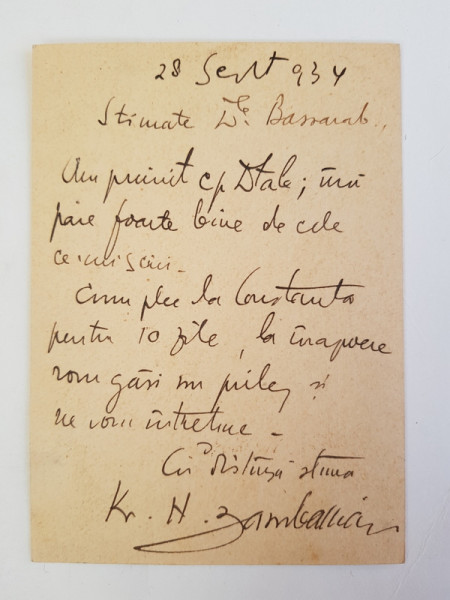 28 Sept 934
Stimate Dle. Bassarab.,
Am primit cp Dtale; îmi
pare foarte bine de cele
ce-mi scrii -
Acum plec la Constanta
pentru 10 zile, la înapoere
vom găsi un prilej și
ne vom întretine -
Cu distinsă stima
Kr. H. Zambaccian